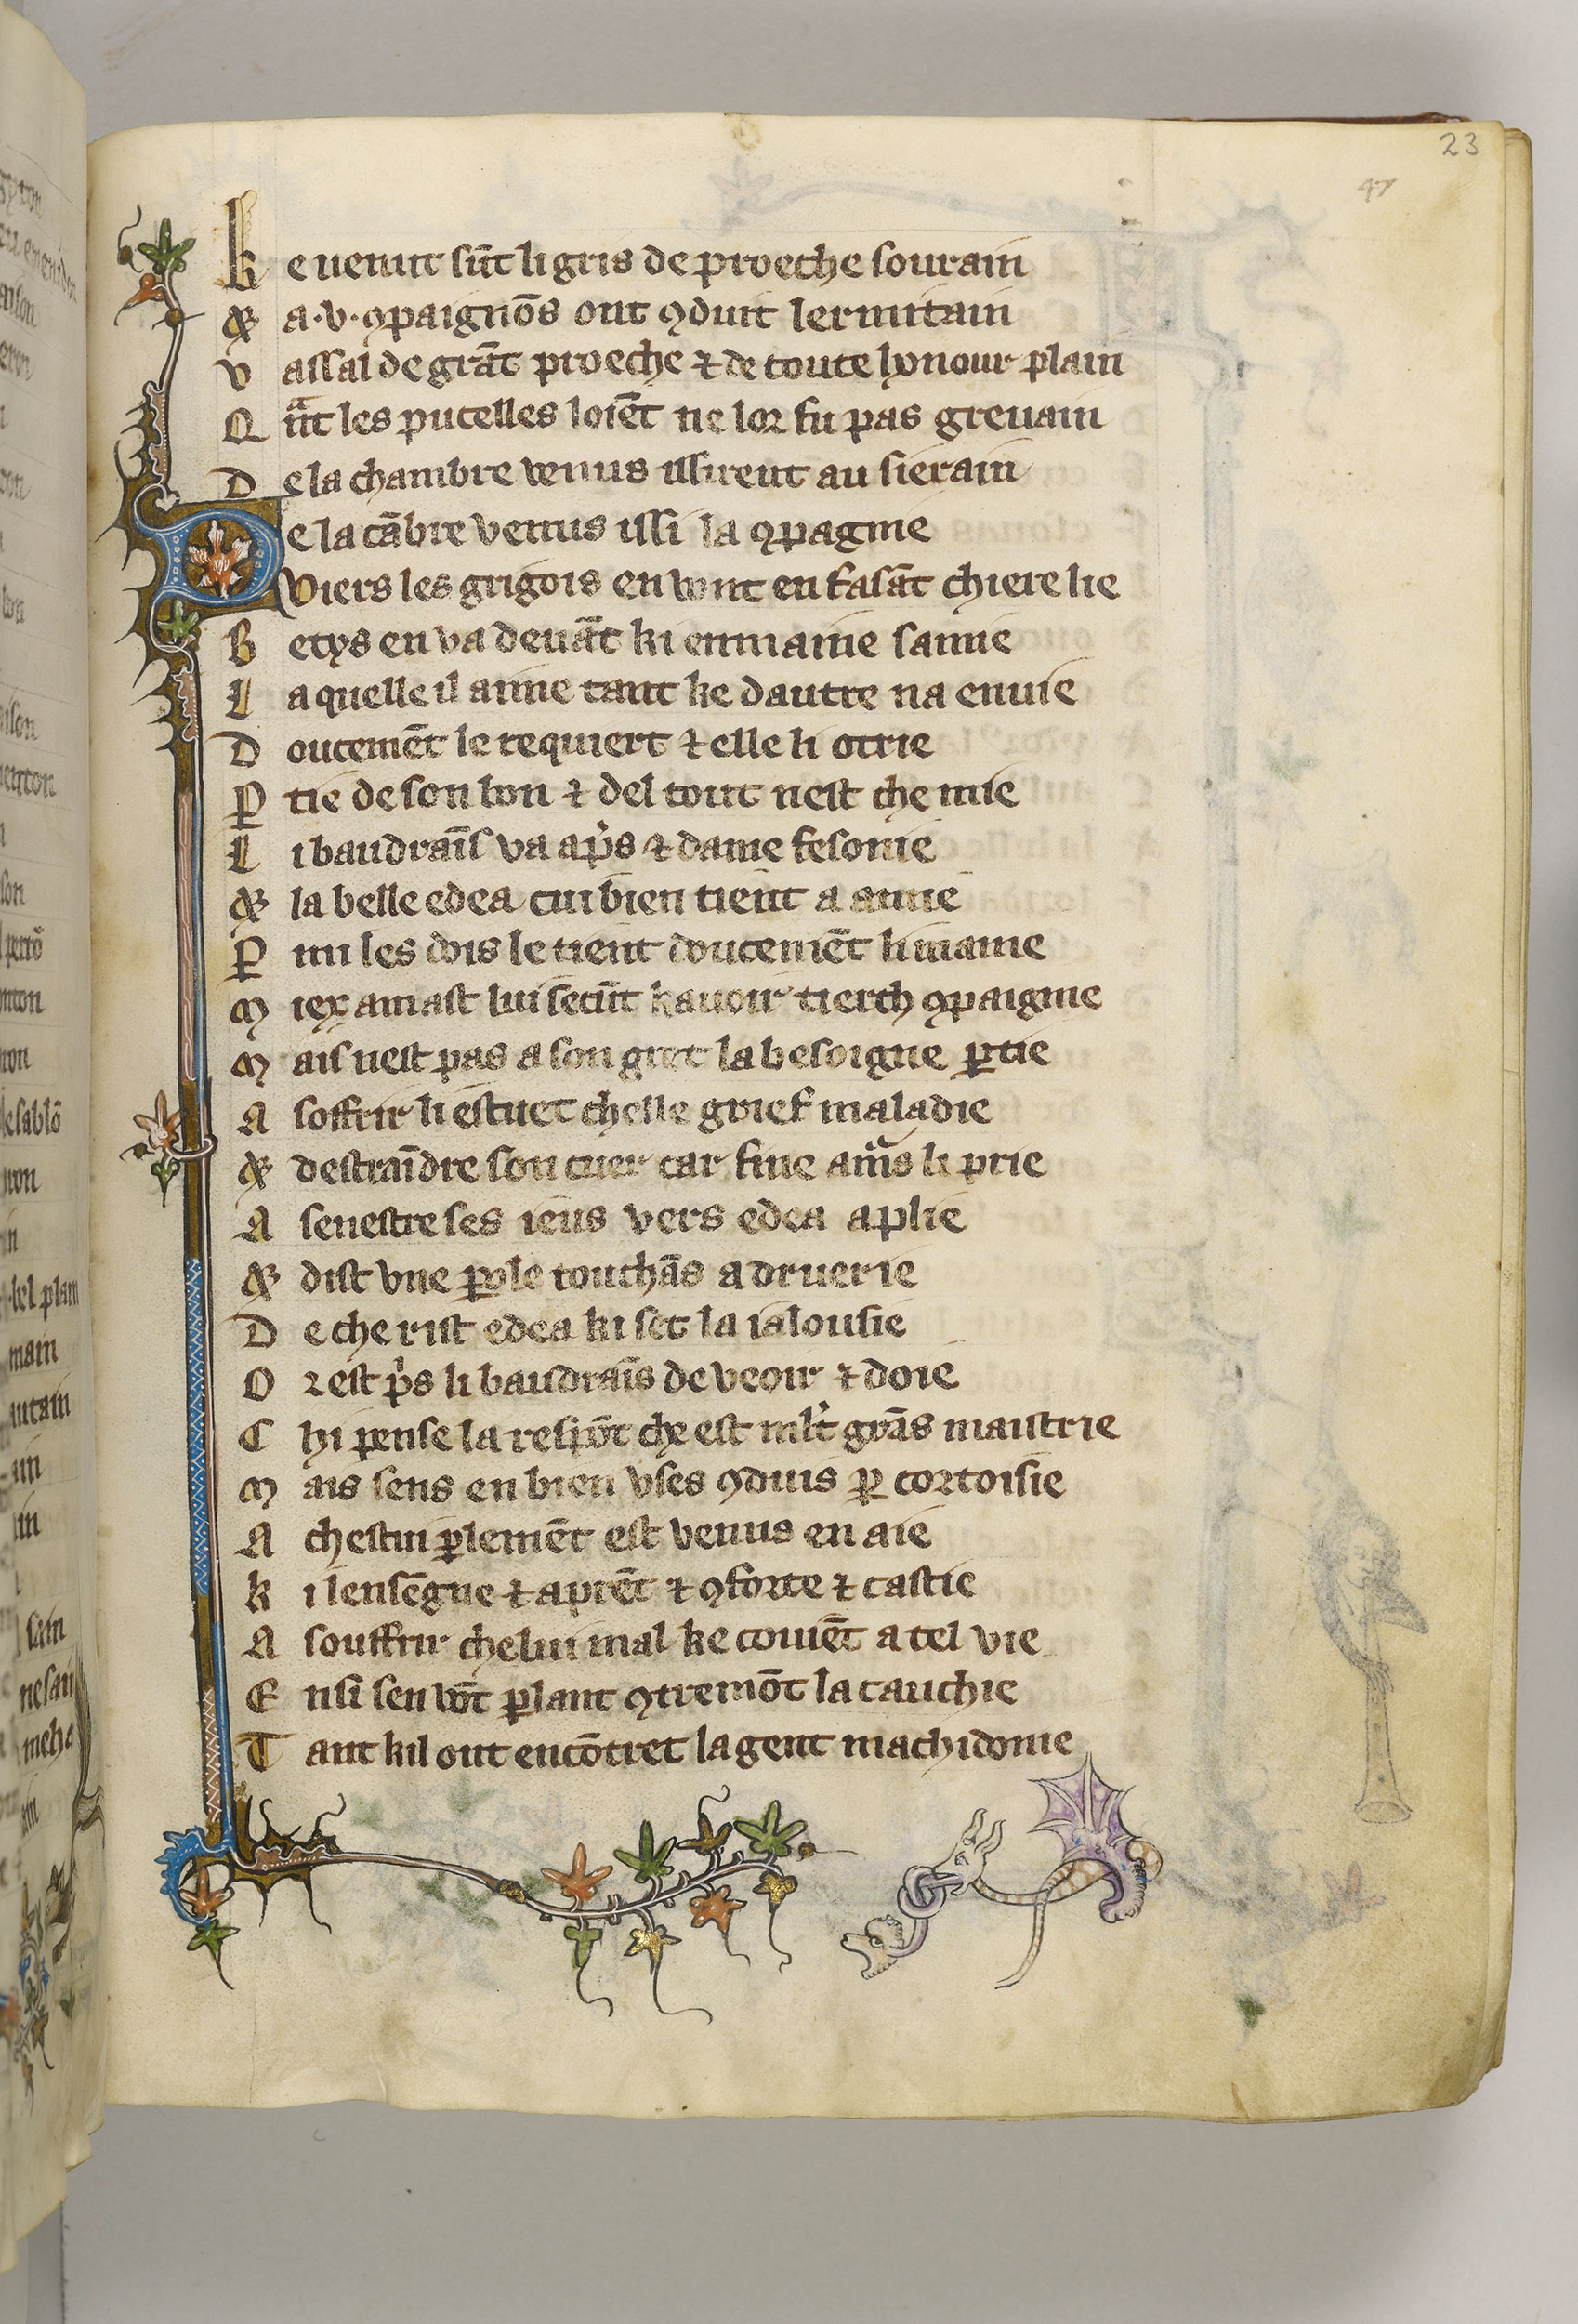 23
47
k e uenut sūt li gris de proeche sourain
& a .v. ꝯpaignōs ont ꝯduit lermitain
v assal de grāt proeche ⁊ de toute honour plain
Q nͣt les pucelles loiēt ne lor fu pas greuain
D e la chambre venus issirent au sierain
De la cābre venus issi la ꝯpagnie
Viers les grigois en vont en fasāt chiere lie
B etys en va deuāt ki enmaine samie
L a quelle il aime tant ke dautre na enuie
D oucemēt le requiert ⁊ elle li otrie
ꝑ tie de son bon ⁊ del tout nest che mie
L i baudraīs va ap̓s ⁊ dame fesonie
& la belle edea cui bien tient a amie
ꝑ mi les dois le tient doucemēt li maine
M iex amast lui secūt kauoir tierch ꝯpaignie
M ais nest pas a son gret la besoigne ꝑtie
A soffrir li estuet chelle grief maladie
& destraīdre son cuer car fine amͣs li prie
A senestre ses ieus vers edea aplie
& dist vne ꝑole touchās a druerie
D e che rist edea ki set la ialousie
O r est p̓s li baudraīs de veoir ⁊ doie
C hi pense la respōt che est ml̓t grās maistrie
M ais sens en bien vses ꝯduis ꝑ cortoisie
A chestui ꝑlemēt est venus en aie
k i lensēgne ⁊ aprēt ⁊ ꝯforte ⁊ castie
A souffrir chelui mal ke couiēt a tel vie
E nsi sen vōt ꝑlant ꝯtremōt la cauchie
T ant kil ont encōtret la gent machidonie